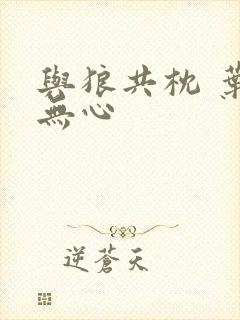 與狼共枕 葉
無心
逆蒼天